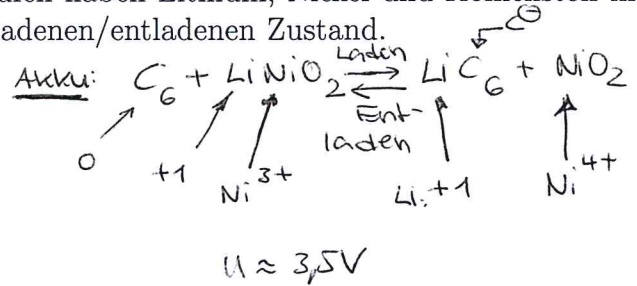 adenen/entladenen Zustand.
Akku: C₆ + LiNiO₂ Laden ⇌ Entladen LiC₆ + NiO₂
C⊖
0 +1 Ni³⁺ Li: +1 Ni⁴⁺
U ≈ 3,5V